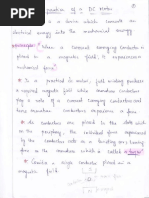 operation of a DC Motor
is a device which converts an
electrical energy into the mechanical energy
principle: When a Current carrying Conductor is
placed in a magnetic field, it experiences a
mechanical force
* In a practical DC motor, field winding produces
a required magnetic field while armature conductors
play a role of a current carrying conductors and hence
armature conductors experience a force.
* As conductors are placed in the slots which are
on the periphery, the individual force experienced
by the conductors acts as a twisting or turning force
on the armature which is called a torque
* Consider a single conductor placed in a
magnetic field